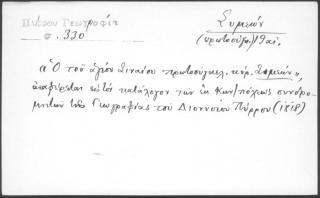 Πύρρου Γεωγραφία
σ. 330
Συμεών
(πρωτοσύγκ.) 19 αι.
« Ὁ τοῦ ἁγίου Σιναίου πρωτοσύγκελ. κύρ. Συμεών »,
ἀναφέρεται εἰς τὸν κατάλογον τῶν ἐκ Κων/πόλεως συνδρο-
μητῶν τῆς Γεωγραφίας τοῦ Διονυσίου Πύρρου (1818)